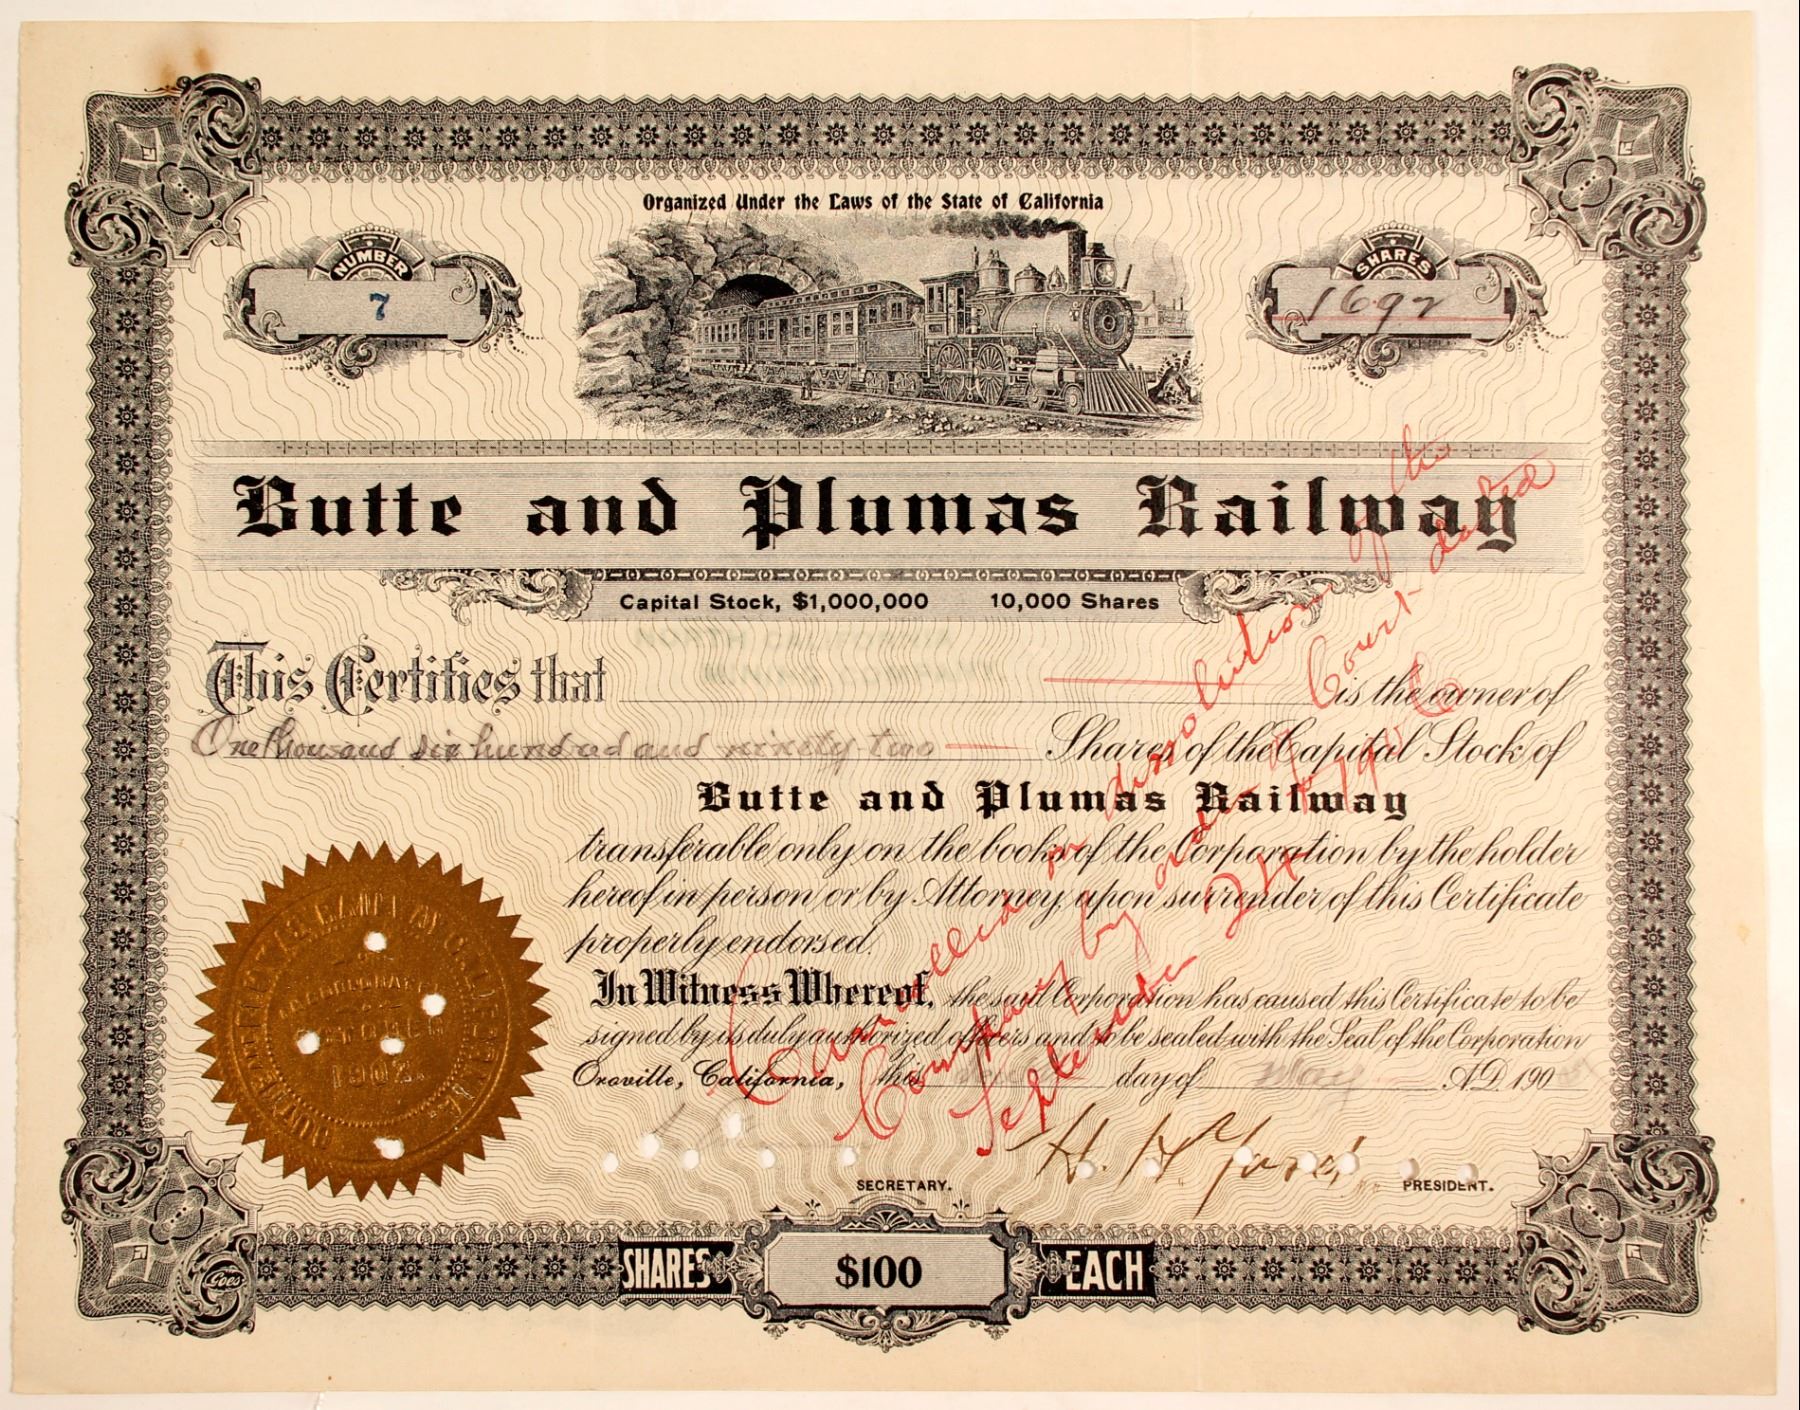 Organized Under the Laws of the State of California
NUMBER
7
SHARES
1692
Butte and Plumas Railway
Capital Stock, $1,000,000 10,000 Shares
This Certifies that is the owner of
One thousand six hundred and ninety two Shares of the Capital Stock of
Butte and Plumas Railway
transferable only on the books of the Corporation by the holder
hereof in person or by Attorney upon surrender of this Certificate
properly endorsed.
In Witness Whereof, the said Corporation has caused this Certificate to be
signed by its duly authorized officers and to be sealed with the Seal of the Corporation
Oroville, California, this day of May A.D. 190
Cancelled on dissolution of the
Company by order of Court dated
September 24
OCTOBER
1902.
SECRETARY.
PRESIDENT.
SHARES $100 EACH
Goes